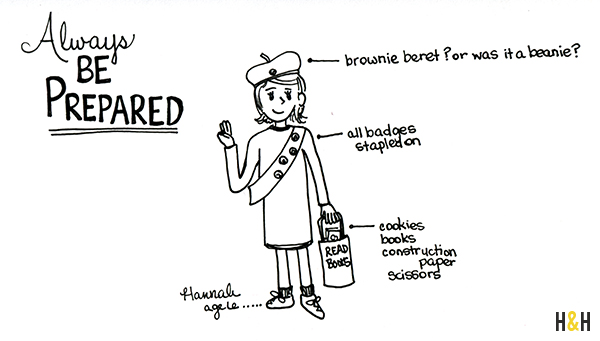 Always
BE
PREPARED
brownie beret? or was it a beanie?
all badges
stapled on
cookies
books
construction
paper
scissors
READ
BOOKS
Hannah
age 6.....
H&H